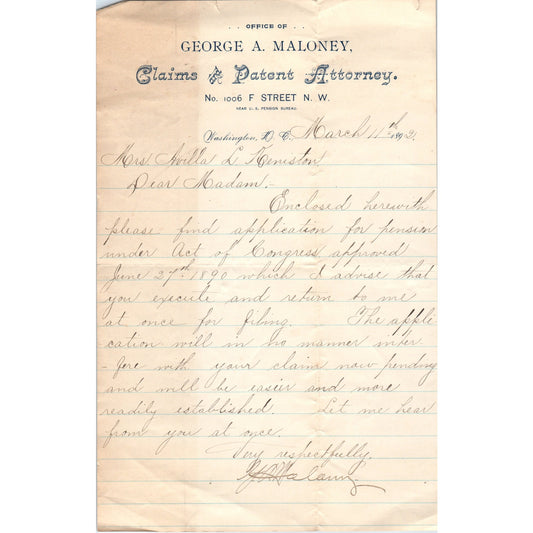 . . OFFICE OF . .
GEORGE A. MALONEY,
Claims & Patent Attorney.
No. 1006 F STREET N. W.
NEAR U. S. PENSION BUREAU.
Washington, D. C. March 11th 1892.
Mrs Avilla L Keniston
Dear Madam.-
Enclosed herewith
please find application for pension
under Act of Congress approved
June 27th 1890 which I advise that
you execute and return to me
at once for filing. The appli-
cation will in no manner inter
-fere with your claim now pending
and will be easier and more
readily established. Let me hear
from you at once.
Very respectfully.
G A Maloney